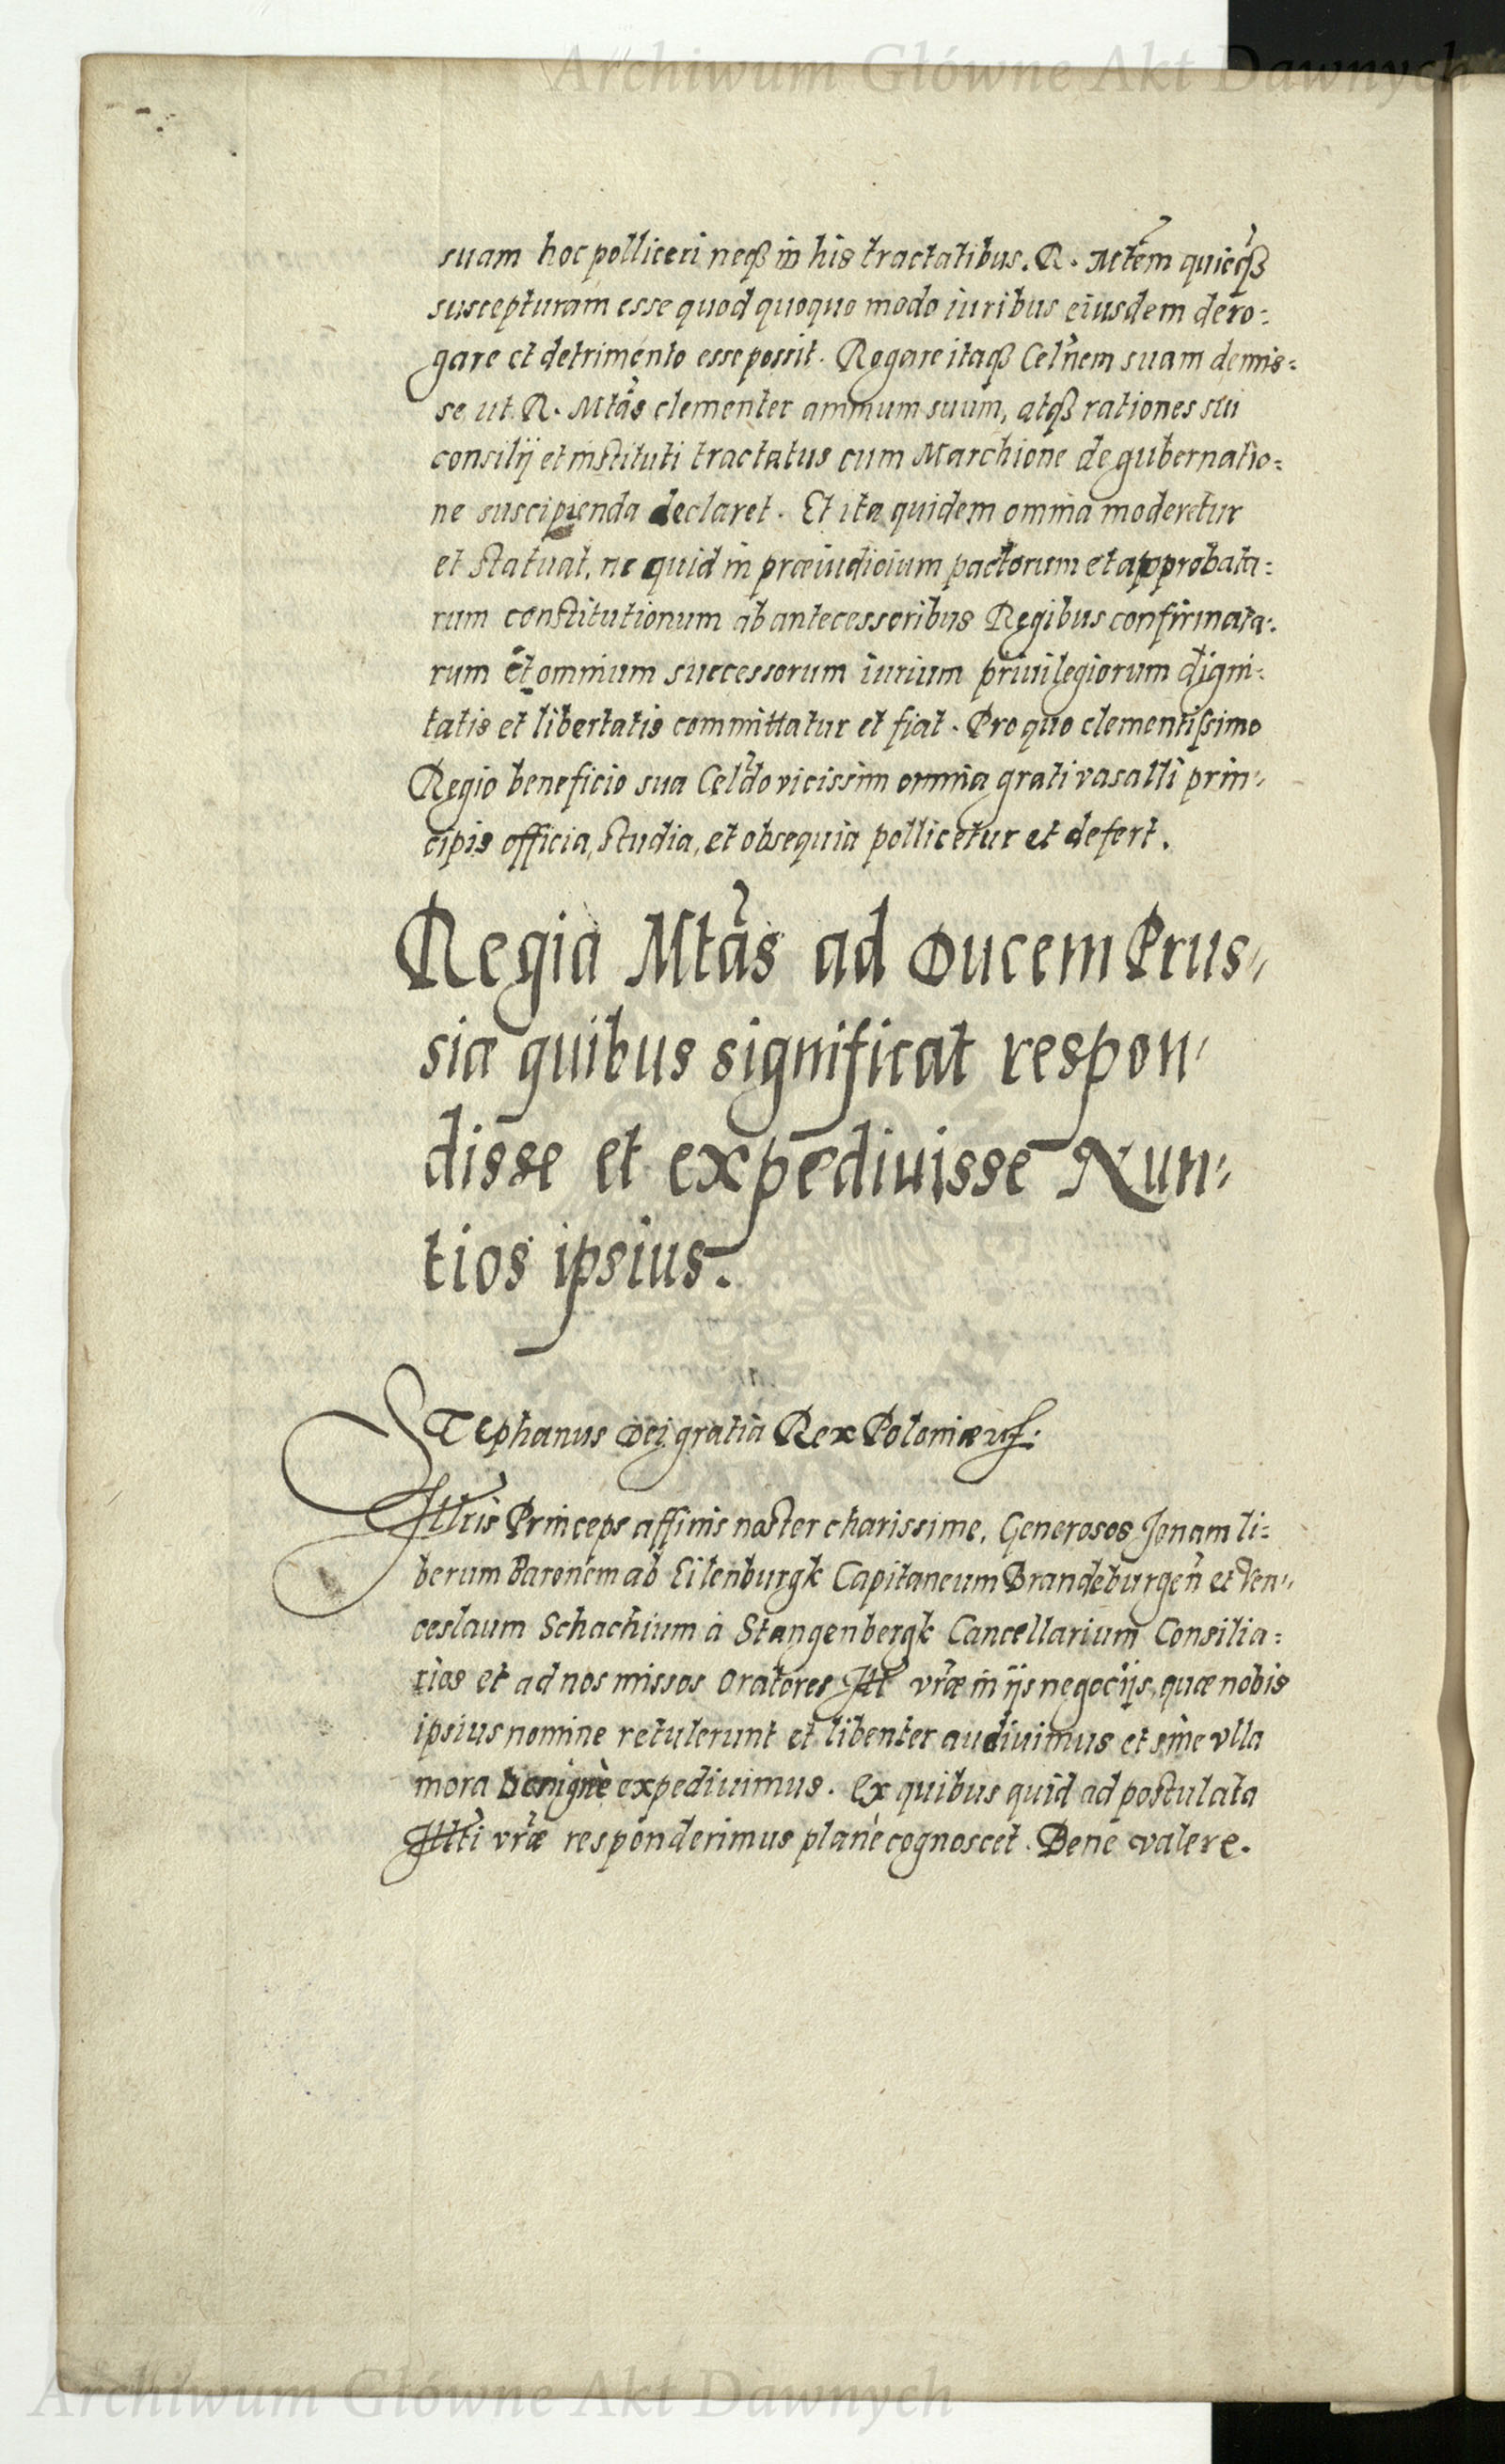 Archiwum Główne Akt Dawnych
suam hoc polliceri neqß in his tractatibus. R. Mtem quicqß
suscepturam esse quod quoquo modo iuribus eiusdem dero:
gare et detrimento esse possit. Rogare itaqß Celnem suam demis:
se ut R. Mtas clementer animum suum, atqß rationes sui
consilij et instituti tractatus cum Marchione de gubernatio:
ne suscipienda declaret. Et ita quidem omnia moderetur
et statuat, ne quid in præiudicium pactorum et approbata:
rum constitutionum ab antecessoribus Regibus confirmata:
rum et omnium successorum iurium priuilegiorum digni:
tatis et libertatis committatur et fiat. Pro quo clementissimo
Regio beneficio sua Celdo vicissim omnia grati vasalli prin:
cipis officia, studia, et obsequia pollicetur et defert.
Regia Mtas ad Ducem Prus:
siæ quibus significat respon:
disse et expediuisse Nun:
tios ipsius.
Stephanus Dei gratia Rex Poloniæ
Illris Princeps affinis noster charissime. Generosos Jonam li:
berum Baronem ab Eilenburgk Capitaneum Brandeburgen et Ven:
ceslaum Schachium à Stangenbergk Cancellarium Consilia:
rios et ad nos missos Oratores Ill vræ in ijs negocijs, quæ nobis
ipsius nomine retulerunt et libenter audiuimus et sine vlla
mora benignè expediuimus. Ex quibus quid ad postulata
Illti vræ responderimus planè cognoscet. Bene valere.
Archiwum Główne Akt Dawnych